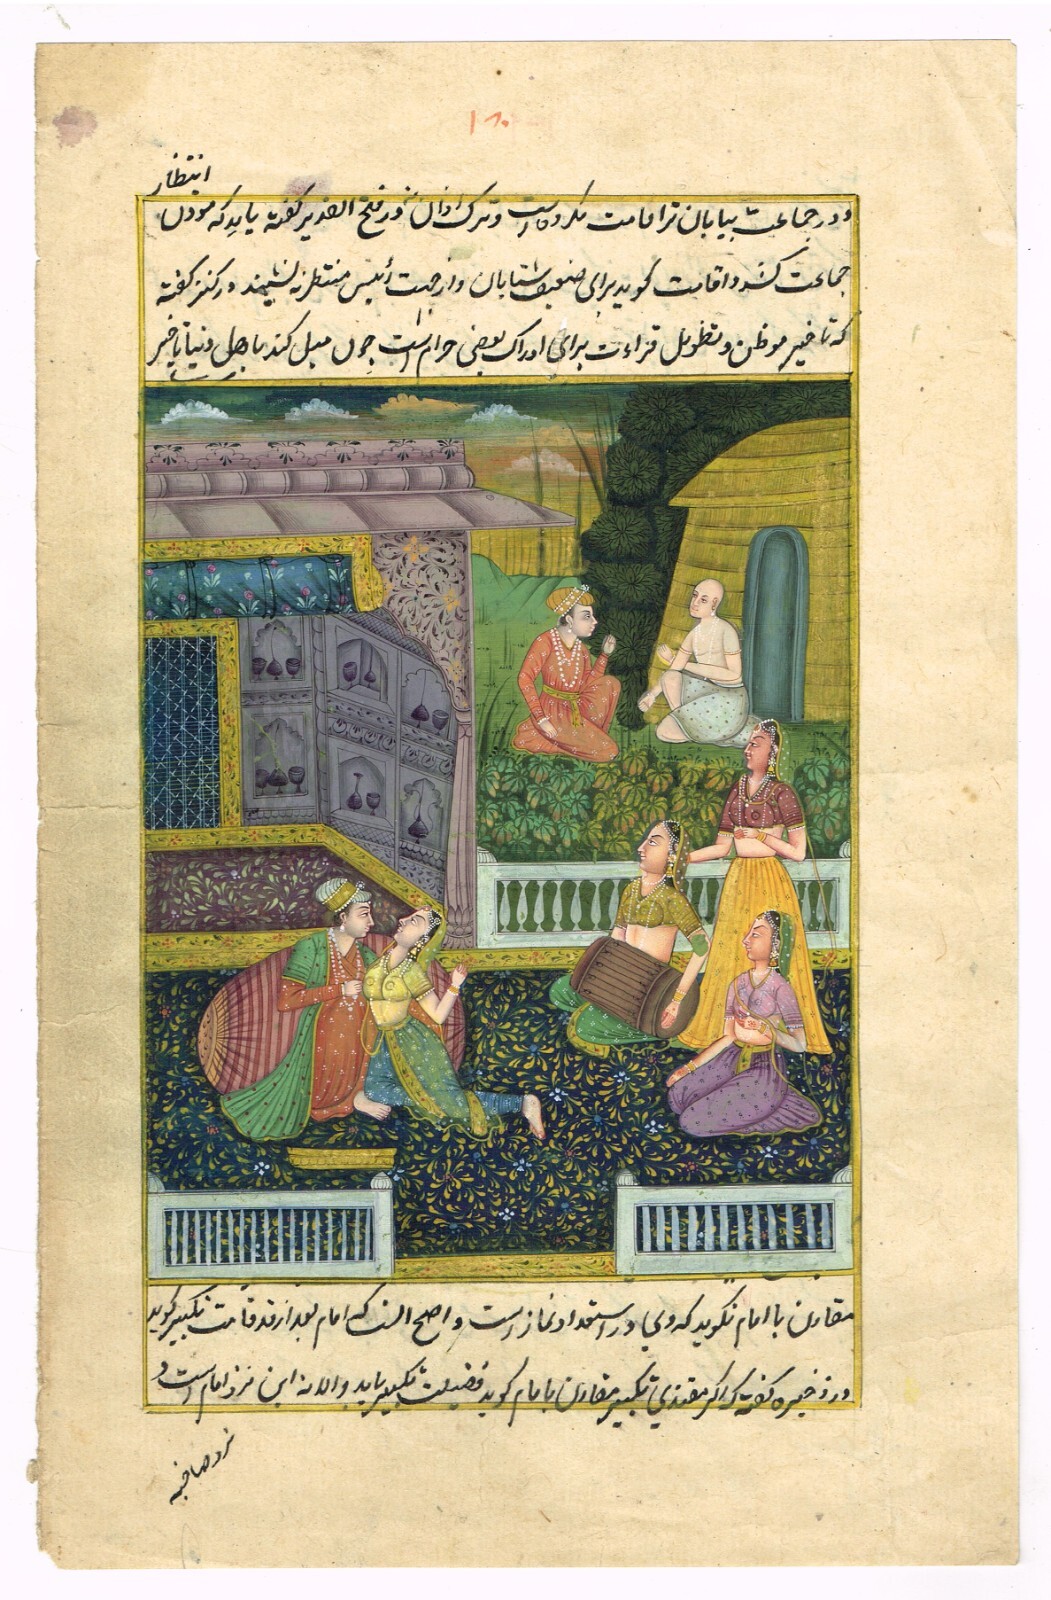 ۱۶۰
انتظار
و در جماعت بیابان ترا قامت مکروه است و ترک اذان نه در فتح القدیر گفته یابد که موذن
جماعت کشد و اقامت گوید برای ضعیف شتابان و از جهت رئیس منتظر نه نشیند در کنز گفته
که تاخیر موظن و تطویل قراءت برای ادراک بعضی حرام است چون میل کند باهل دنیا تاخیر
مقارن با امام نگوید که وی در استعداد نماز است و اصح النست که امام بعد از قد قامت تکبیر گوید
در ذخیره گفته که اگر مقتدی تکبیر مقارن با امام گوید فضیلت تکبیر یابد و الا نه این نزد امام است و
نزد صاحبه